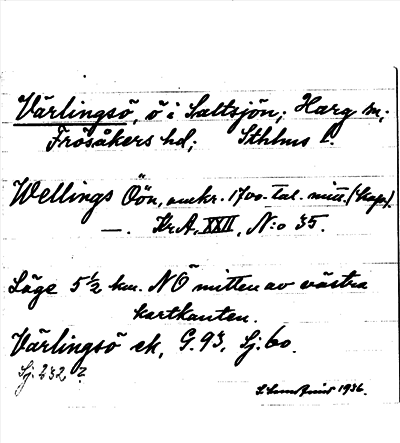 Värlingsö, ö i Saltsjön; Harg sn;
Frösåkers hd; Sthlms l.
Wellings Öön, omkr. 1700-tal. mitt. (kop.).
—. KrA, XXII, N:o 35.
Läge 5½ km. NÖ mitten av västra
kartkanten.
Värlingsö ek, G. 93, Sj. 60.
Sj. 232 ?
1936.